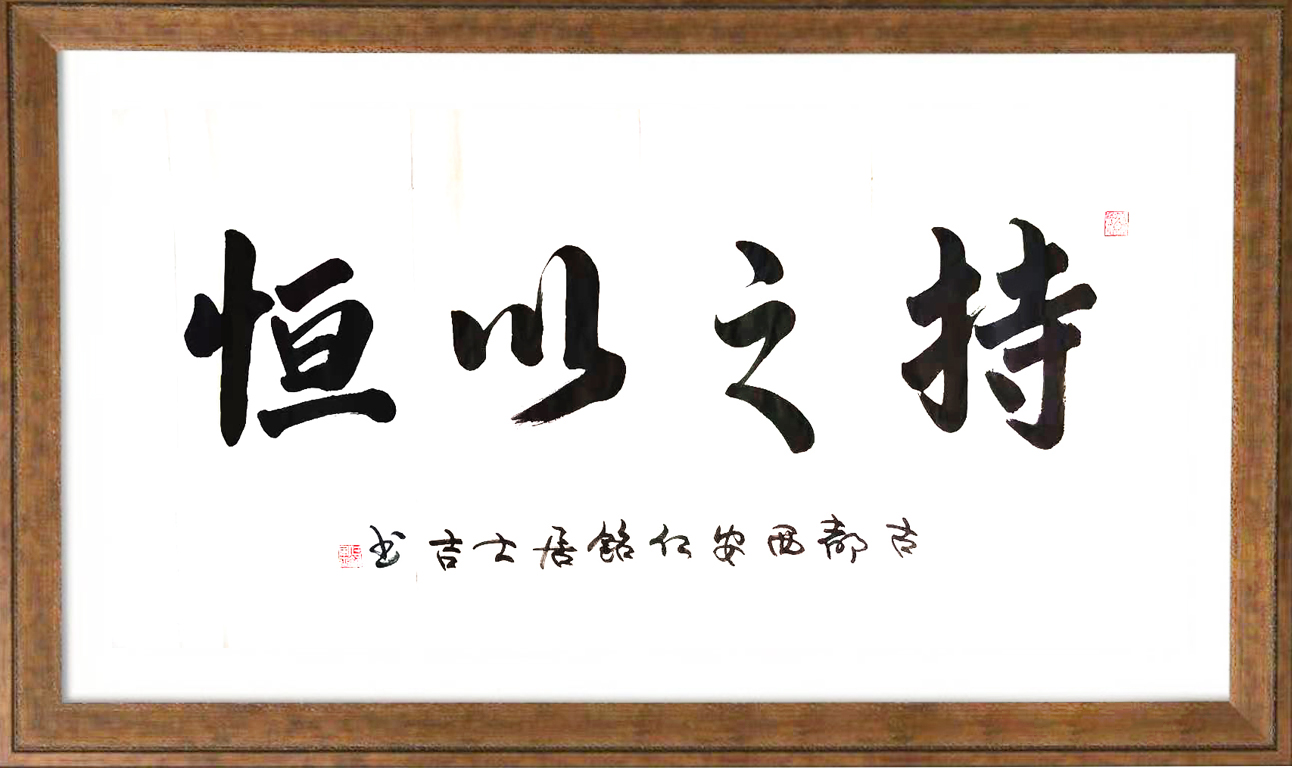 持之以恒
古都西安仁铭居士吉书